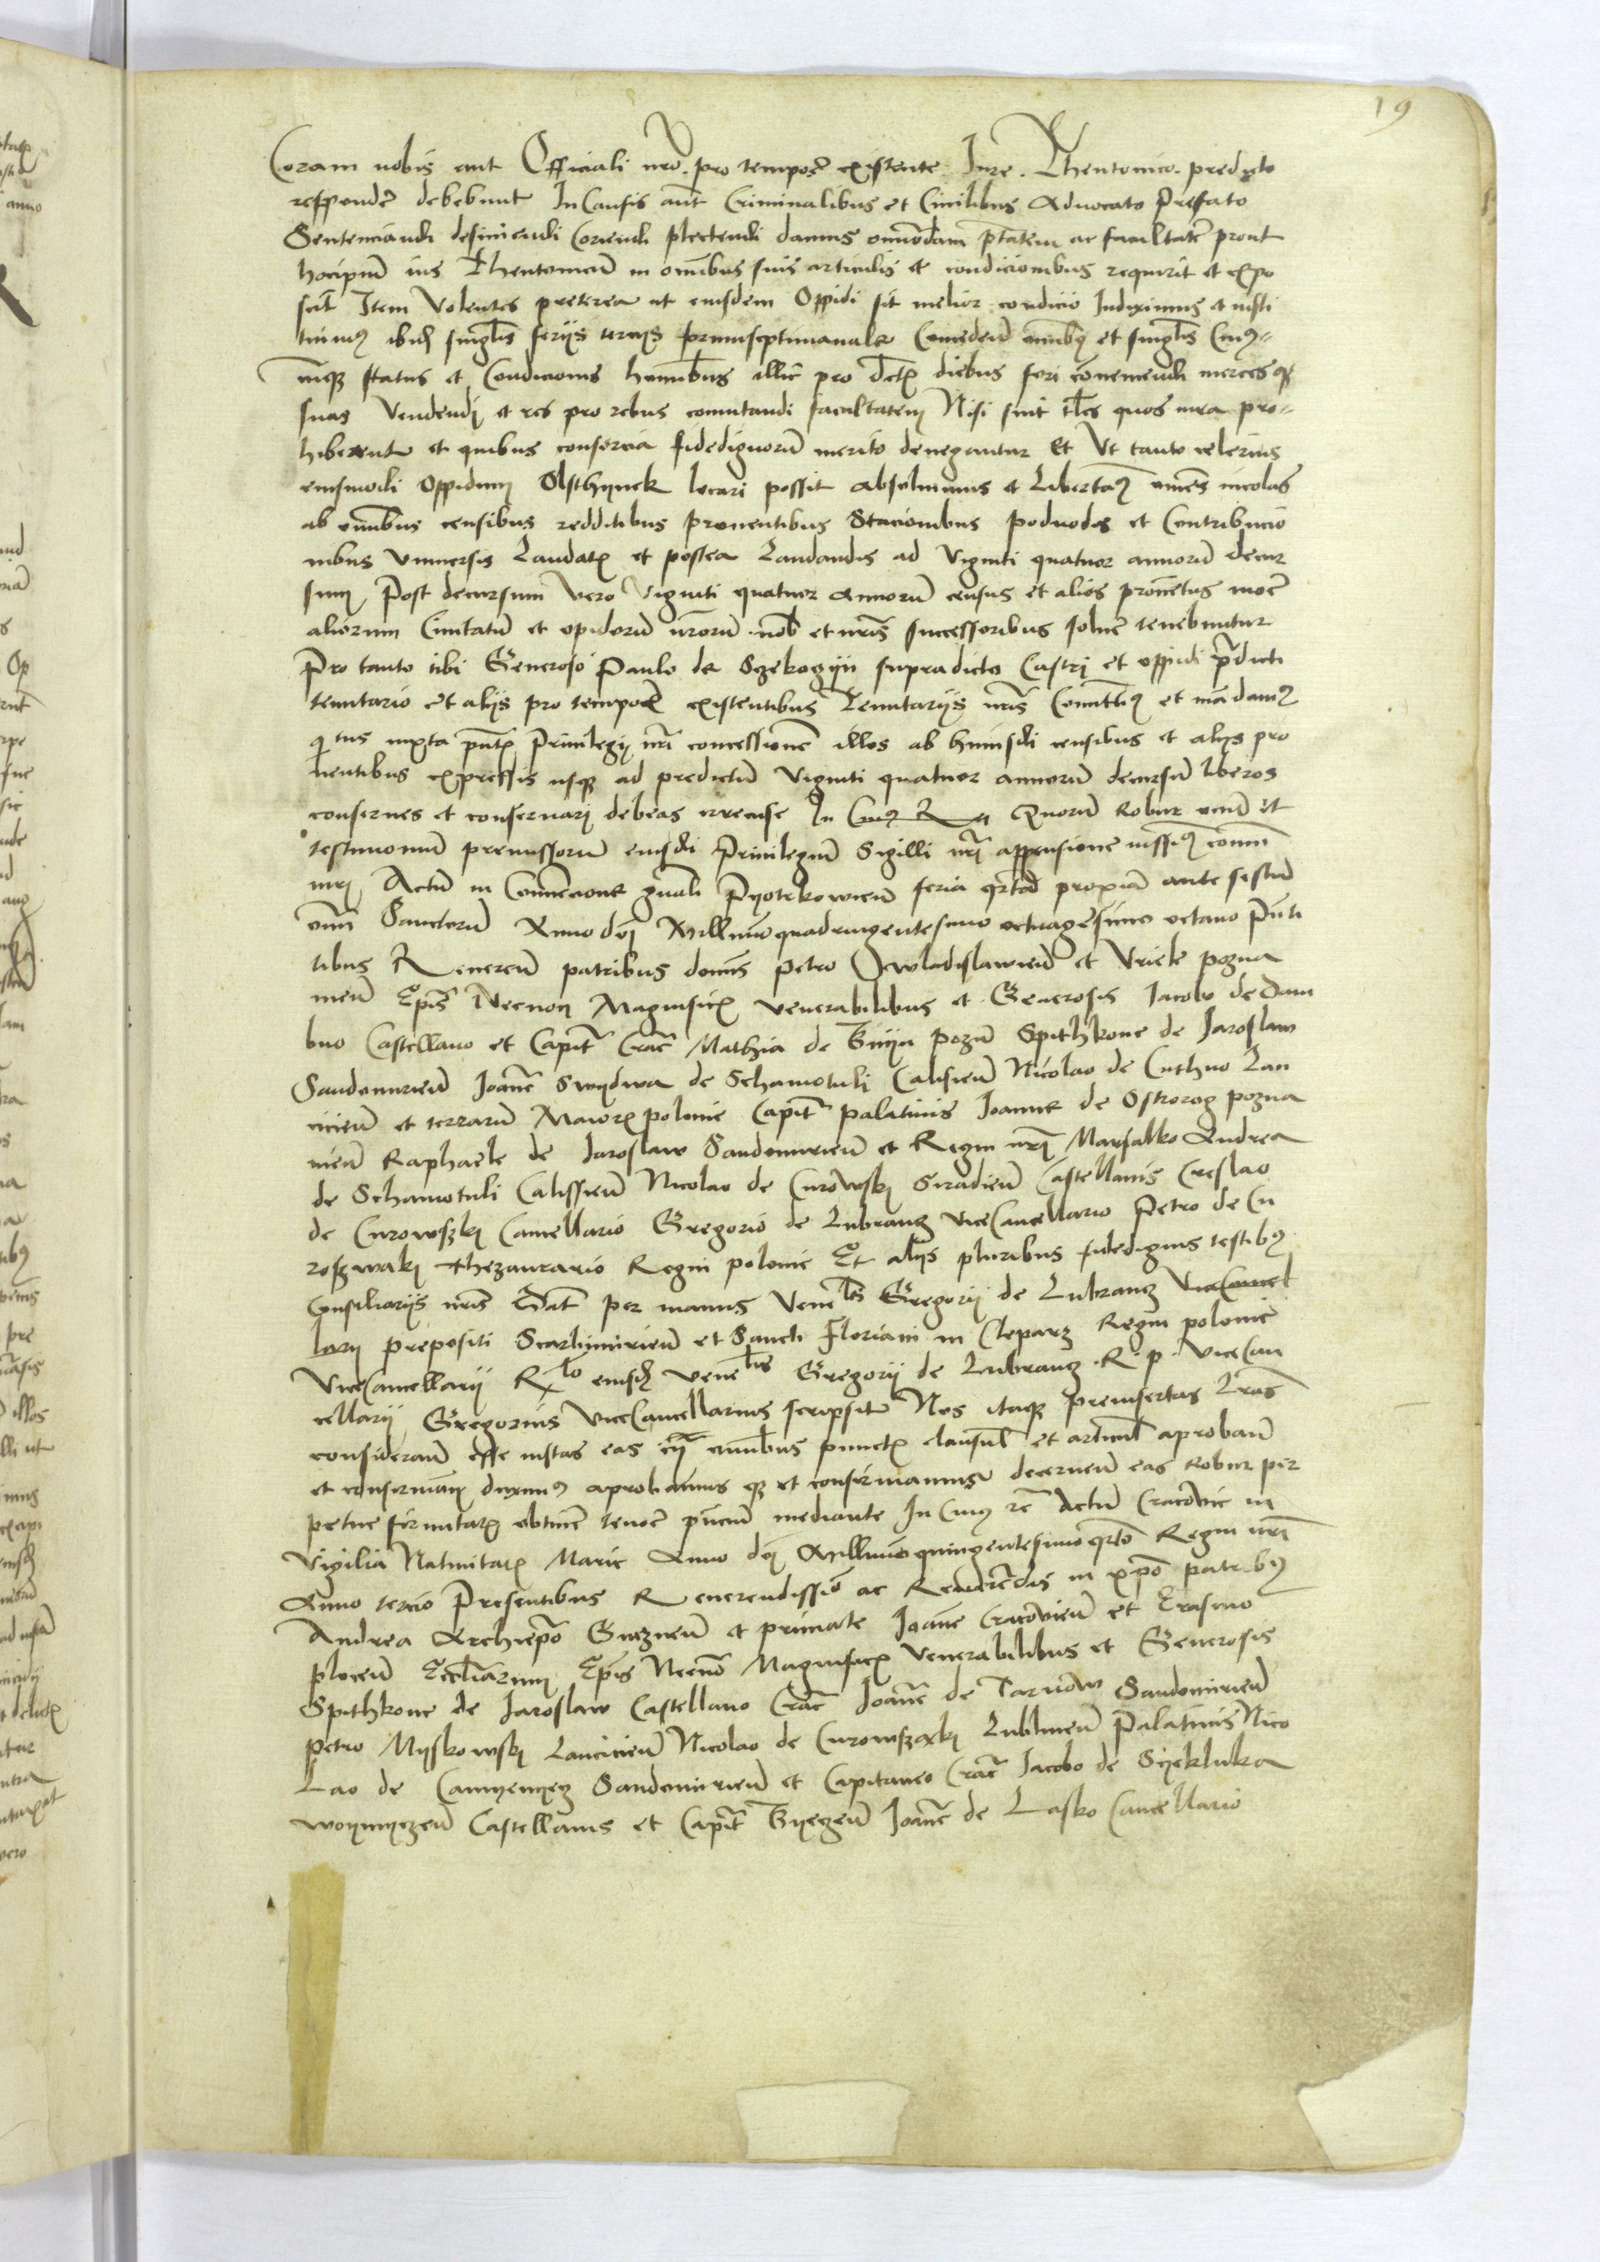 19
Coram nobis aut Officiali nro pro tempore existente Jure Thentonico predicto
respondere debebunt In Causis aut Criminalibus et Civilibus Advocato Prefato
Sentenciandi definiendi plectendi damus omnimodam ptatem ac facultatem prout
hocipm ius Thentonicum in omnibus suis articulis et condicionibus requirit et expo
scit Item Volentes preterea ut eiusdem Oppidi sit melior condicio Induximus et insti
tuimus ibidem singulis feriis terciis forum septimanale omnibus et singulis Cuius
cunque status et Condicionis hominibus illic pro dictis diebus fori conveniendi merces
suas Vendendi et res pro rebus comutandi facultatem Nisi sint tales quos iura pro
hiberent et quibus consorcia fidedignorum merito denegantur Et Ut tanto celerius
eiusmodi Oppidum Olsthynek locari possit absolvimus et Libertamus omnes incolas
ab omnibus censibus redditibus proventibus Stacionibus podvodis et Contribucio
nibus Universis Laudatis et postea Laudandis ad Viginti quatuor annorum decur
sum Post decursum vero Viginti quatuor Annorum census et alios proventus more
aliorum Civitatum et opidorum nrorum nobis et nris successoribus solvere tenebuntur
Pro tanto tibi Generoso Paulo de Szekoczyn supradicto Castri et oppidi predicti
tenutario et aliis pro tempore existentibus Tenutariis nris Comittimus et mandamus
iuxta Privilegii nri concessionem illos ab huiusmodi censibus et aliis pro
ventibus expressis usque ad predictum Viginti quatuor annorum decursum liberos
conserves et conservari debeas In Cuius Rei Quorum Robur
testimonium premissorum Privilegium Sigilli nri appensione iussimus comu
niri Actum in Convencione gnali Pyotrkowien feria qrta proxia ante festum
omnium Sanctorum Anno dni Millimo quadringentesimo octuagesimo octavo Pnti
tibus Reveren patribus dominis Petro Wladislawien et Uriele pozna
nien Epis Necnon Magnificis venerabilibus et Generosis Jacobo de Dam
bno Castellano et Capit Crac Mathia de Bnyn pozn Spithkone de Jaroslaw
Sandomirien Joanne Swydwa de Schamotuli Calisien Nicolao de Cuthno Lan
cicien et terrarum Maioris polonie Capit palatinis Joanne de Ostrorog pozna
nien Raphaele de Jaroslaw Sandomirien et Regni nri Marsalko Andrea
de Schamotuli Calissien Nicolao de Curowski Siradien Castellanis Creslao
de Curowszki Cancellario Gregorio de Lubrancz ViceCancellario Petro de Cu
roszwaki Thezaurario Regni polonie Et aliis pluribus fidedignis testibus
Consiliariis nris Dat per manus Venelis Gregorii de Lubrancz ViceCancel
larii prepositi Scarbimirien et Sancti Floriani in Cleparz Regni polonie
ViceCancellarii Rlo eiusdem venelis Gregorii de Lubrancz R p ViceCan
cellarii Gregorius ViceCancellarius scripsit Nos itaque preinsertas Lras
consideran esse iustas eas omnibus punctis clausul et articul aproban
et confirman duximus aprobamus que et confirmamus decernen eas Robur per
petue firmitatis obtinere tenore pncium mediante In Cuius rei Actum Cracovie in
Vigilia Nativitatis Marie Anno dni Millimo quingentesimo qrto Regni nri
Anno tercio Presentibus Reverendissimo ac Reverendis in xpo patribus
Andrea Archiepo Gneznen et primate Joanne Cracovien et Erasmo
plocen Eccliarum Epis Necno Magnificis Venerabilibus et Generosis
Spithkone de Jaroslaw Castellano Crac Joanne de Tarnow Sandomirien
Petro Myskowski Lancicien Nicolao de Curowszki Lublinen Palatinis Nico
lao de Camyenyecz Sandomirien et Capitaneo Crac Jacobo de Syekluka
woynyczen Castellanis et Capit Joanne de Lasko Cancellario